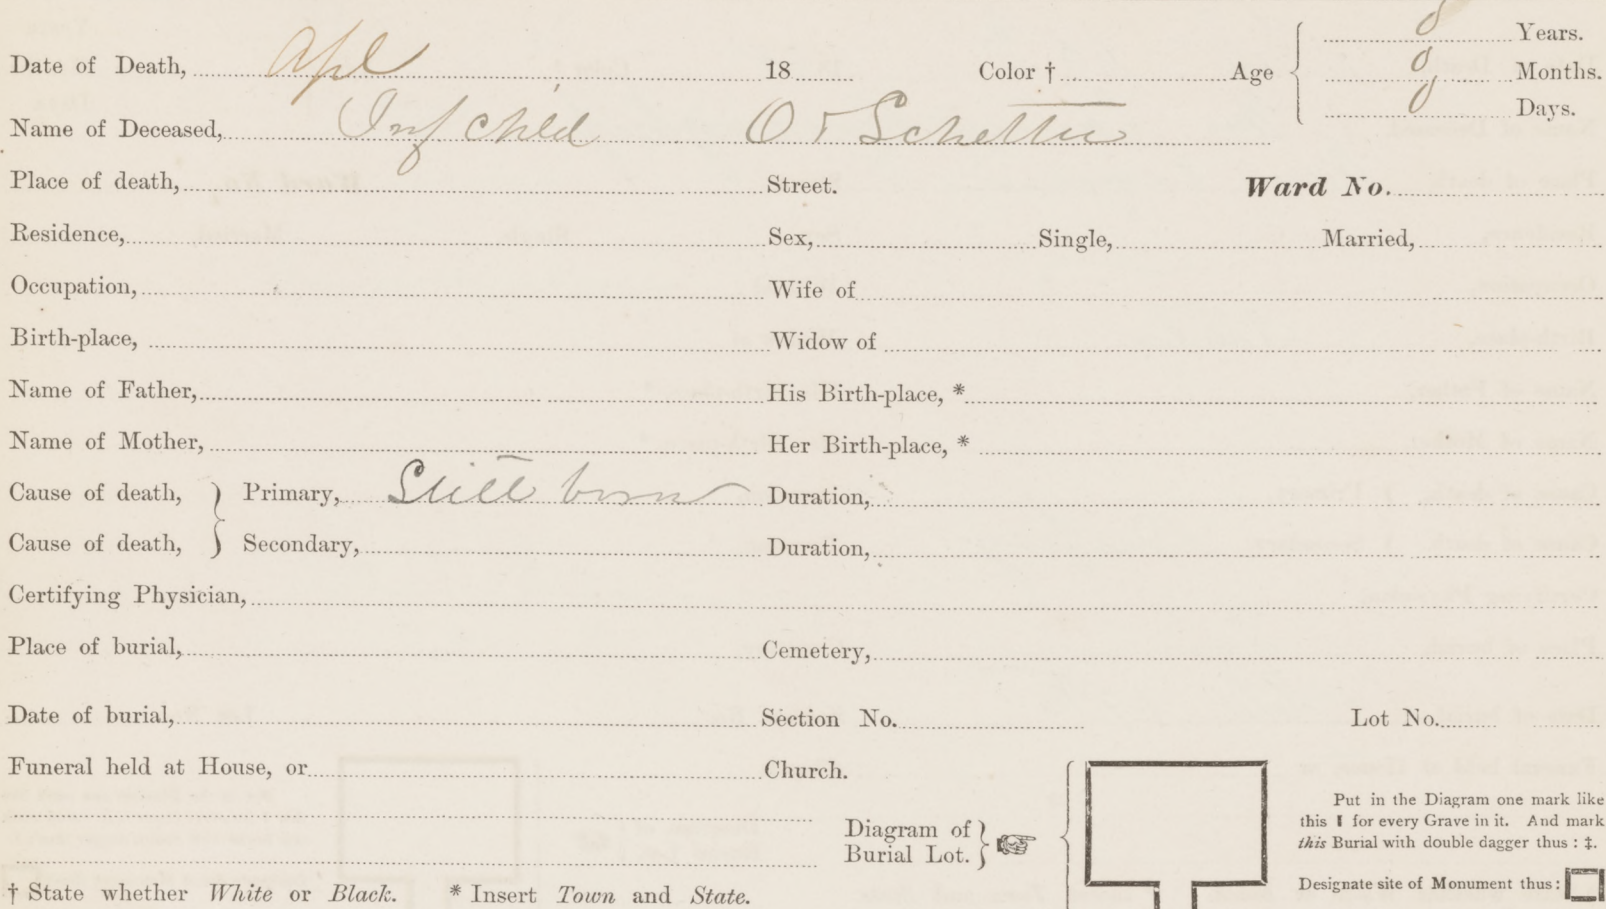 Date of Death, Apl 18 Color † Age 0 Years.
0 Months.
0 Days.
Name of Deceased, Inf child O
Place of death, Street. Ward No.
Residence, Sex, Single, Married,
Occupation, Wife of
Birth-place, Widow of
Name of Father, His Birth-place, *
Name of Mother, Her Birth-place, *
Cause of death, } Primary, Still born Duration,
Cause of death, } Secondary, Duration,
Certifying Physician,
Place of burial, Cemetery,
Date of burial, Section No. Lot No.
Funeral held at House, or Church.
Diagram of
Burial Lot.
Put in the Diagram one mark like
this ▮ for every Grave in it. And mark
this Burial with double dagger thus : ‡.
Designate site of Monument thus :
† State whether White or Black. * Insert Town and State.